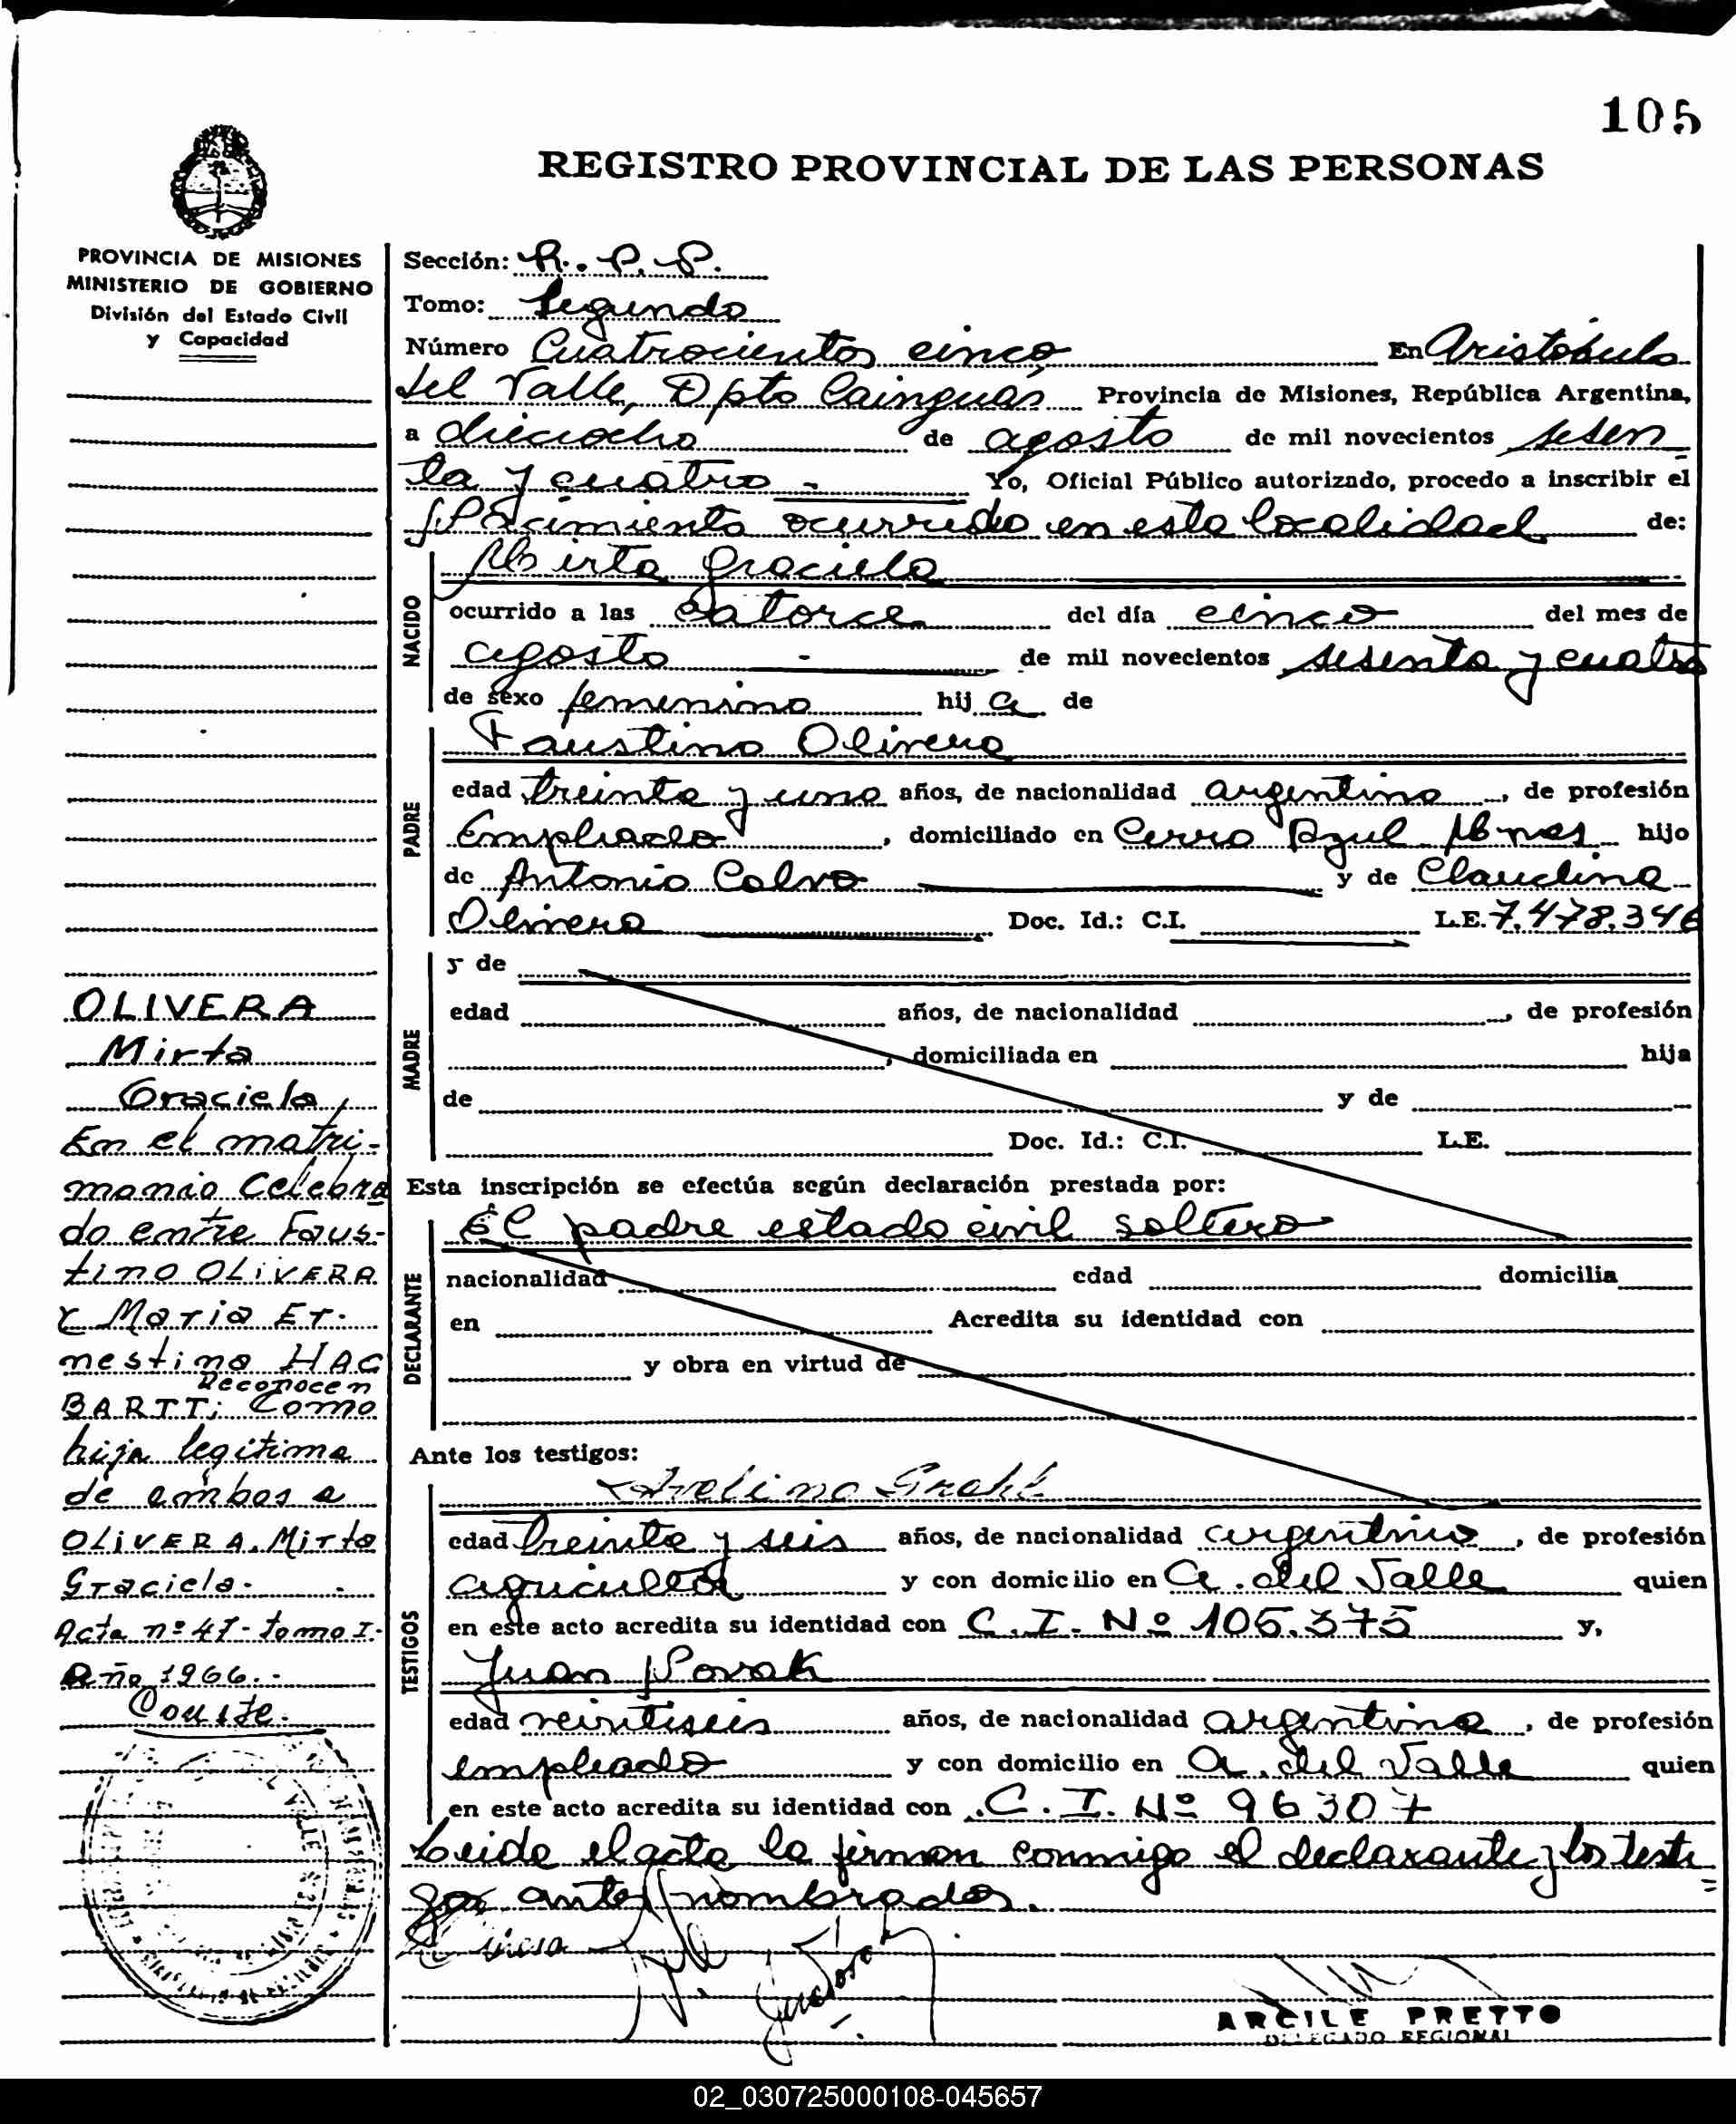 105
REGISTRO PROVINCIAL DE LAS PERSONAS
PROVINCIA DE MISIONES
MINISTERIO DE GOBIERNO
División del Estado Civil
y Capacidad
Sección: R. P. P.
Tomo: Segundo
Número Cuatrocientos cinco En Aristóbulo
del Valle, Dpto Cainguás Provincia de Misiones, República Argentina,
a dieciocho de agosto de mil novecientos sesen
ta y cuatro - Yo, Oficial Público autorizado, procedo a inscribir el
Nacimiento ocurrido en esta localidad de:
NACIDO
Mirta Graciela
ocurrido a las catorce del día cinco del mes de
agosto - de mil novecientos sesenta y cuatro
de sexo femenino hij a de
PADRE
Faustino Olivera
edad treinta y uno años, de nacionalidad argentino, de profesión
Empleado, domiciliado en Cerro Azul Mnes hijo
de Antonio Calvo y de Claudina
Olivera Doc. Id.: C.I. L.E. 7.478.346
MADRE
y de
edad años, de nacionalidad , de profesión
, domiciliada en hija
de y de
Doc. Id.: C.I. L.E.
Esta inscripción se efectúa según declaración prestada por:
DECLARANTE
El padre estado civil soltero
nacionalidad edad domicilia
en Acredita su identidad con
y obra en virtud de
Ante los testigos:
TESTIGOS
Avelino Grahl
edad treinta y seis años, de nacionalidad argentino, de profesión
agricultor y con domicilio en A. del Valle quien
en este acto acredita su identidad con C.I. Nº 105.375 y,
Juan Novak
edad veintiseis años, de nacionalidad argentina, de profesión
empleado y con domicilio en A. del Valle quien
en este acto acredita su identidad con C.I. Nº 96307
Leida el acta la firman conmigo el declarante y los testi
gos antes nombrados.
ARCILE PRETTO
DELEGADO REGIONAL
OLIVERA
Mirta
Graciela
En el matri-
monio celebra
do entre Faus-
tino OLIVERA
y Maria Er-
nestina HAC
BARTT; Reconocen Como
hija legitima
de ambos a
OLIVERA, Mirta
Graciela.-
Acta nº 47- tomo I-
Año 1966.-
Conste.
02_030725000108-045657